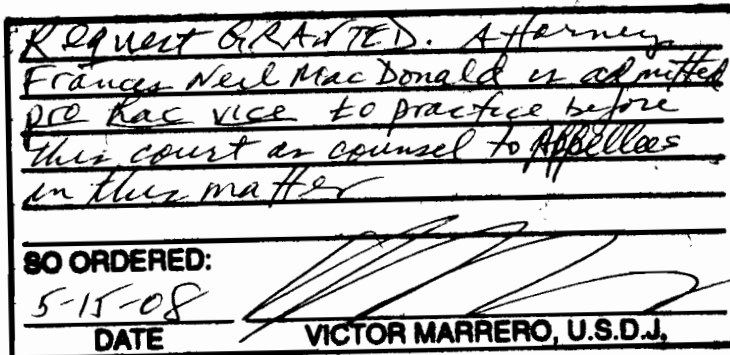 Request GRANTED. Attorney
Frances Neil MacDonald is admitted
pro hac vice to practice before
this court as counsel to Appellees
in this matter
SO ORDERED:
5-15-08
DATE VICTOR MARRERO, U.S.D.J.